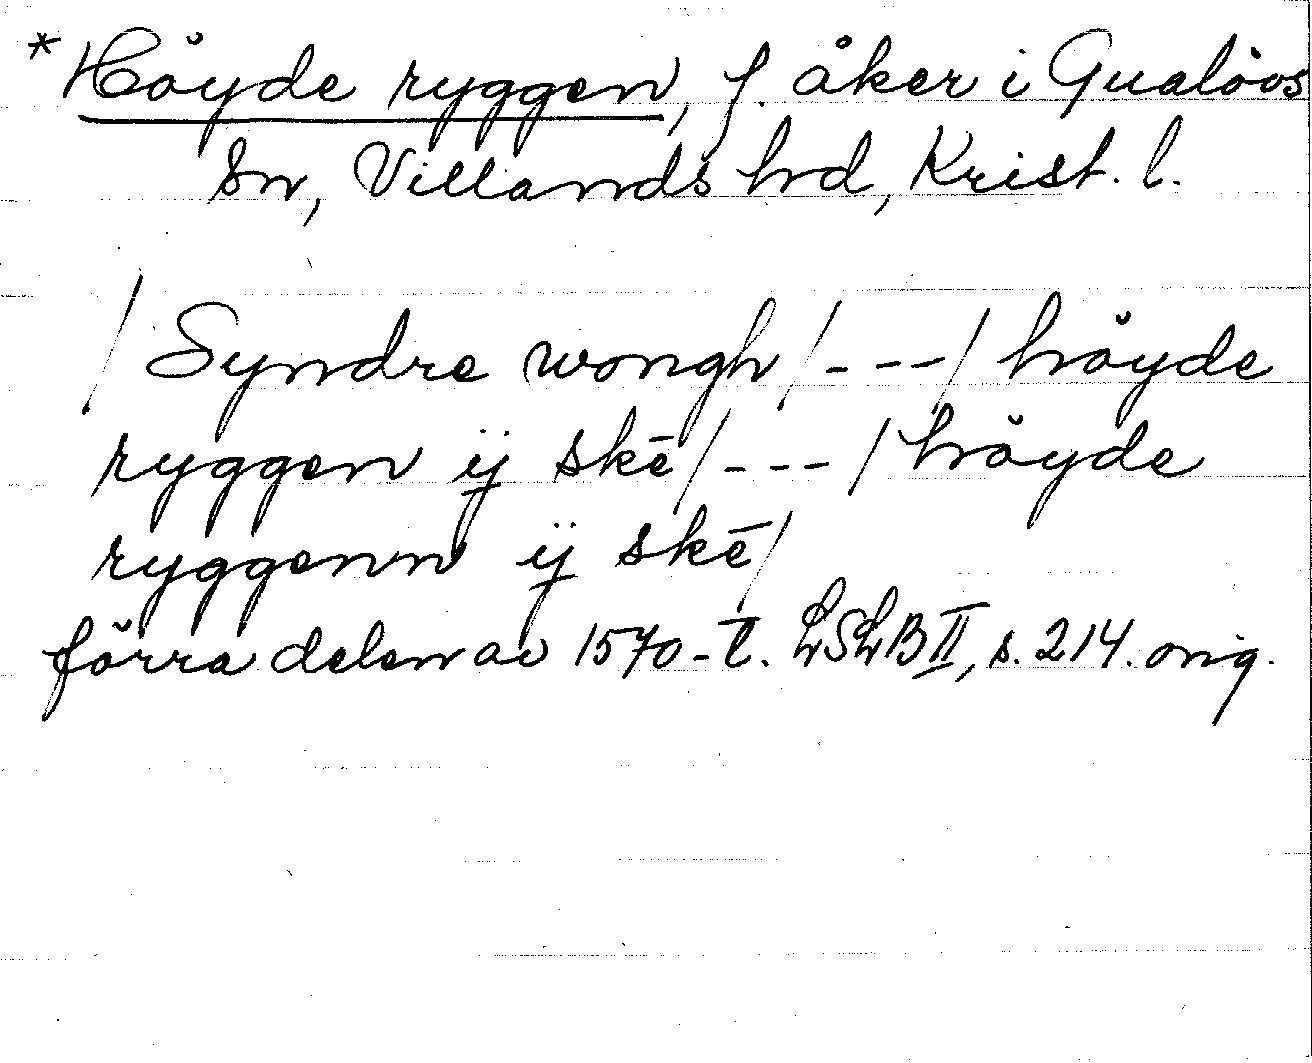 *Höyde ryggen, f. åker i Gualövs
sn, Villands hd, Krist. l.
/Syndre wongh/---/höyde
ryggen ÿ skē/---/höyde
ryggenn ÿ skē/
förra delen av 1570-t. LSLB II, s. 214. orig.